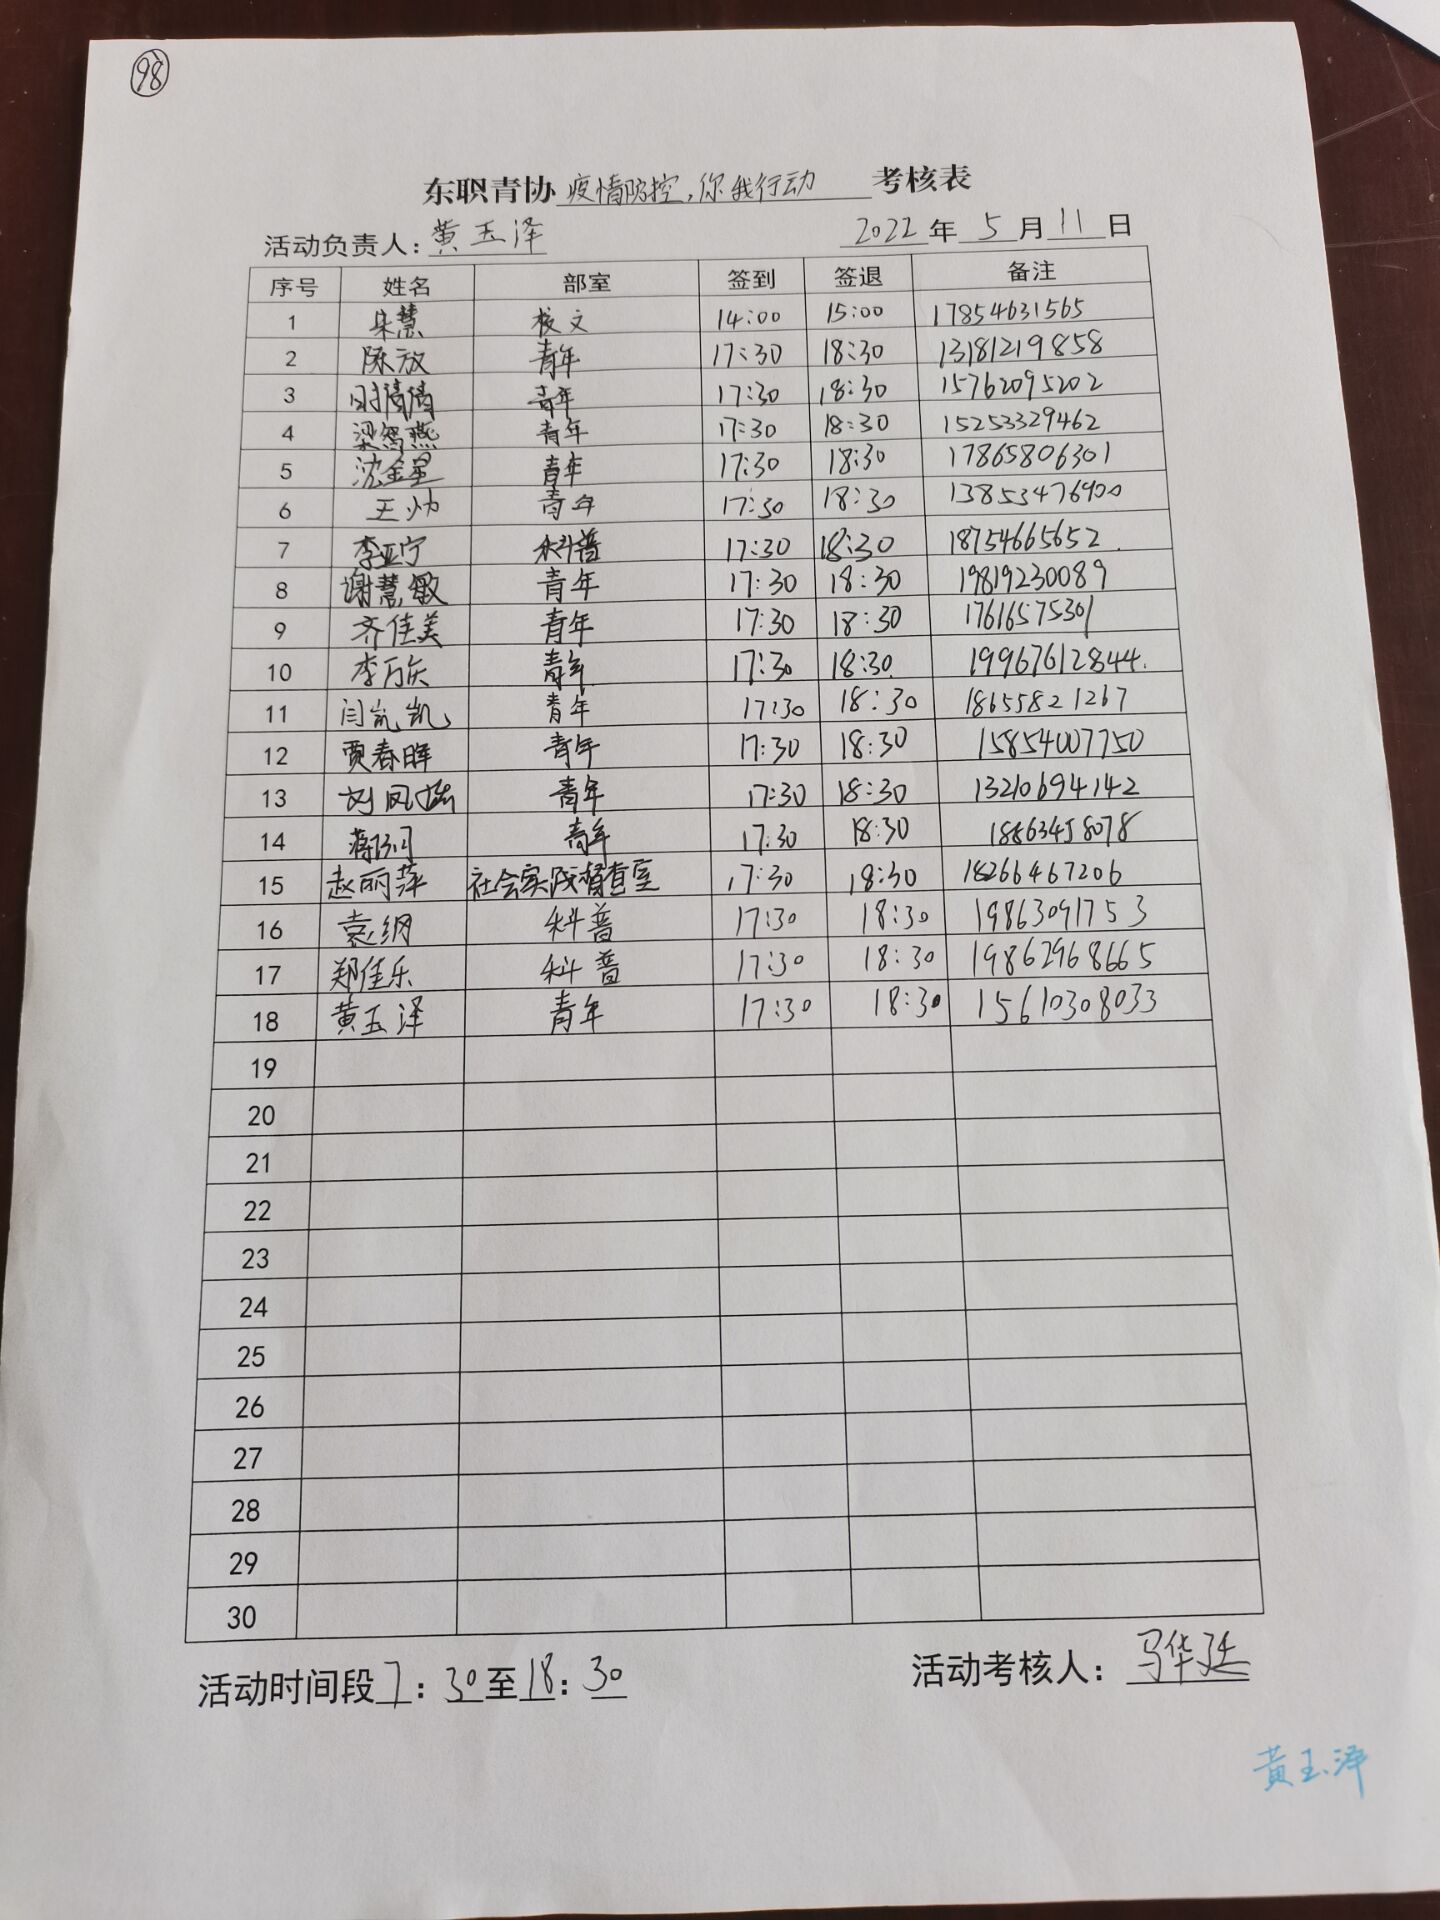 98
东职青协 疫情防控,你我行动 考核表
活动负责人: 黄玉泽 2022 年 5 月 11 日
序号 姓名 部室 签到 签退 备注
1 朱慧 14:00 15:00 17854631565
2 陈放 青年 17:30 18:30 13181219858
3 青年 17:30 18:30 15762095202
4 青年 17:30 18:30 15253329462
5 沈金星 青年 17:30 18:30 17865806301
6 王帅 青年 17:30 18:30 13853476900
7 李亚宁 科普 17:30 18:30 18754665652
8 谢慧敏 青年 17:30 18:30 19819230089
9 齐佳美 青年 17:30 18:30 17616575301
10 李万庆 青年 17:30 18:30 19967612844
11 青年 17:30 18:30 18655821267
12 贾春晖 青年 17:30 18:30 15854007750
13 青年 17:30 18:30 13210694142
14 青年 17:30 18:30 18863458078
15 赵丽萍 社会实践督查室 17:30 18:30 18266467206
16 袁纲 科普 17:30 18:30 19863091753
17 郑佳乐 科普 17:30 18:30 19862968665
18 黄玉泽 青年 17:30 18:30 15610308033
19
20
21
22
23
24
25
26
27
28
29
30
活动时间段 7: 30 至 18: 30 活动考核人: 马华廷
黄玉泽